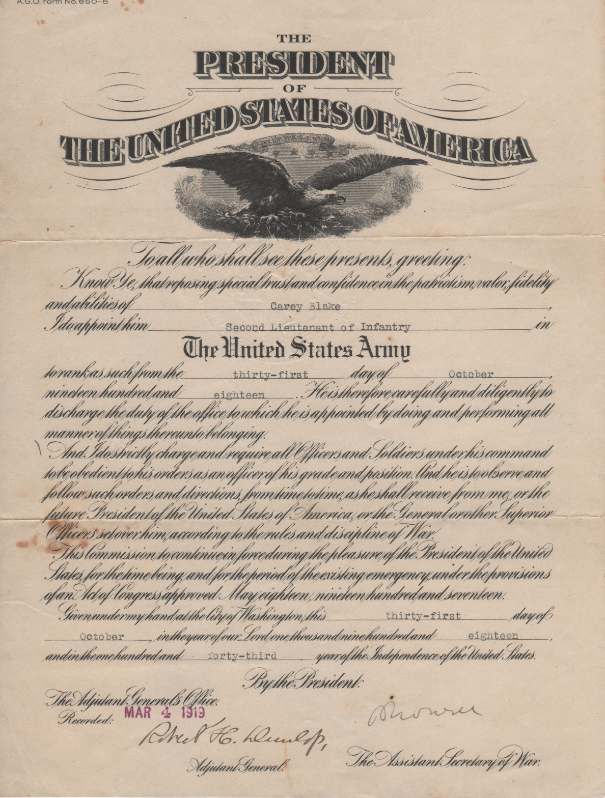 A.G.O. Form No. 650-B
THE
PRESIDENT
OF
THE UNITED STATES OF AMERICA
To all who shall see these presents, greeting:
Know Ye, that reposing special trust and confidence in the patriotism, valor, fidelity
and abilities of Carey Blake,
I do appoint him Second Lieutenant of Infantry in
The United States Army
to rank as such from the thirty-first day of October,
nineteen hundred and eighteen. He is therefore carefully and diligently to
discharge the duty of the office to which he is appointed by doing and performing all
manner of things thereunto belonging.
And I do strictly charge and require all Officers and Soldiers under his command
to be obedient to his orders as an officer of his grade and position. And he is to observe and
follow such orders and directions, from time to time, as he shall receive from me, or the
future President of the United States of America, or the General or other Superior
Officers set over him, according to the rules and discipline of War.
This Commission to continue in force during the pleasure of the President of the United
States, for the time being, and for the period of the existing emergency, under the provisions
of an Act of Congress approved May eighteen, nineteen hundred and seventeen.
Given under my hand at the City of Washington, this thirty-first day of
October, in the year of our Lord one thousand nine hundred and eighteen,
and in the one hundred and forty-third year of the Independence of the United States.
By the President:
The Adjutant General's Office.
Recorded: MAR 4 1919
Robert H. Dunlop,
Adjutant General.
The Assistant Secretary of War.